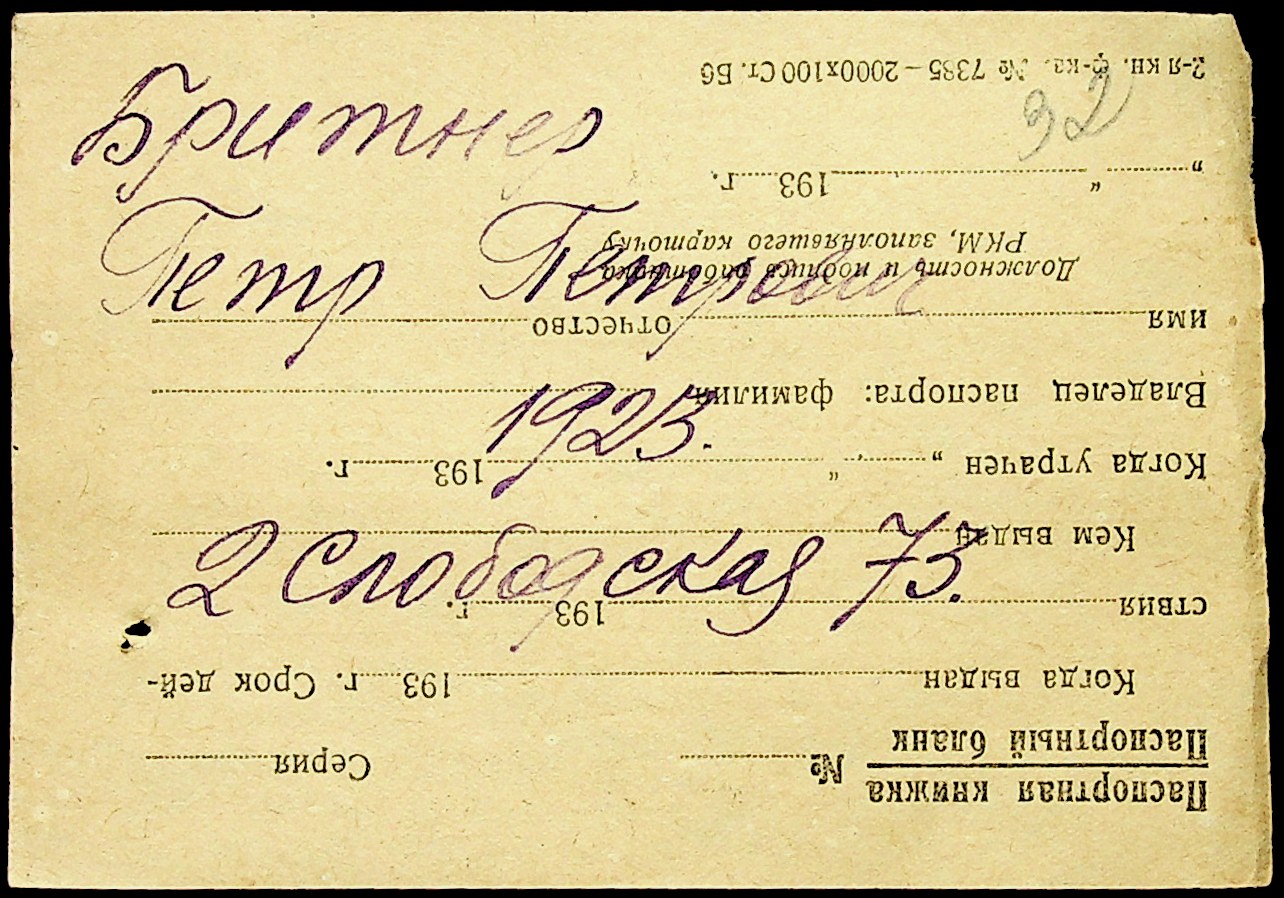 Бритнер
Петр Петрович
1923.
2 Слободская 73.
32
Паспортная книжка
Паспортный бланк
№ Серия
Когда выдан 193 г. Срок дей-
ствия 193 г.
Кем выдан
Когда утрачен „ “ 193 г.
Владелец паспорта: фамилия
имя отчество
Должность и подпись работника
РКМ, заполнявшего карточку
„ “ 193 г.
2-я кн. ф-ка. № 7385 — 2000х100 Ст. Б6